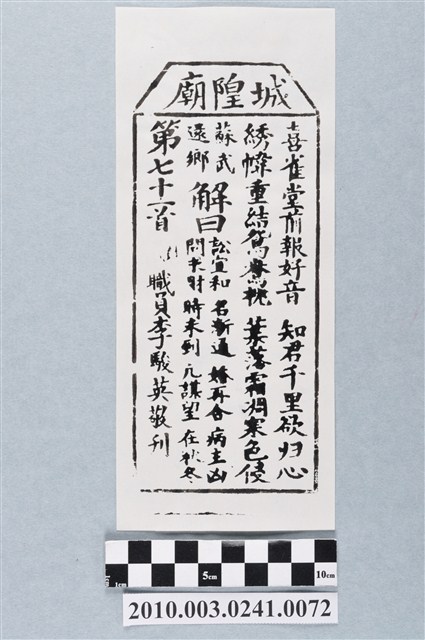 城隍廟
喜雀堂前報好音　知君千里欲归心
綉幃重結鴛鴦枕　葉落霜凋寒色侵
蘇武還鄉
解曰
訟宜和　名漸通　婚再合　病主凶
問求財　時未到　凡謀望　在秋冬
第七十一首　職員李駿英敬刊
1cm 5cm 10cm
2010.003.0241.0072